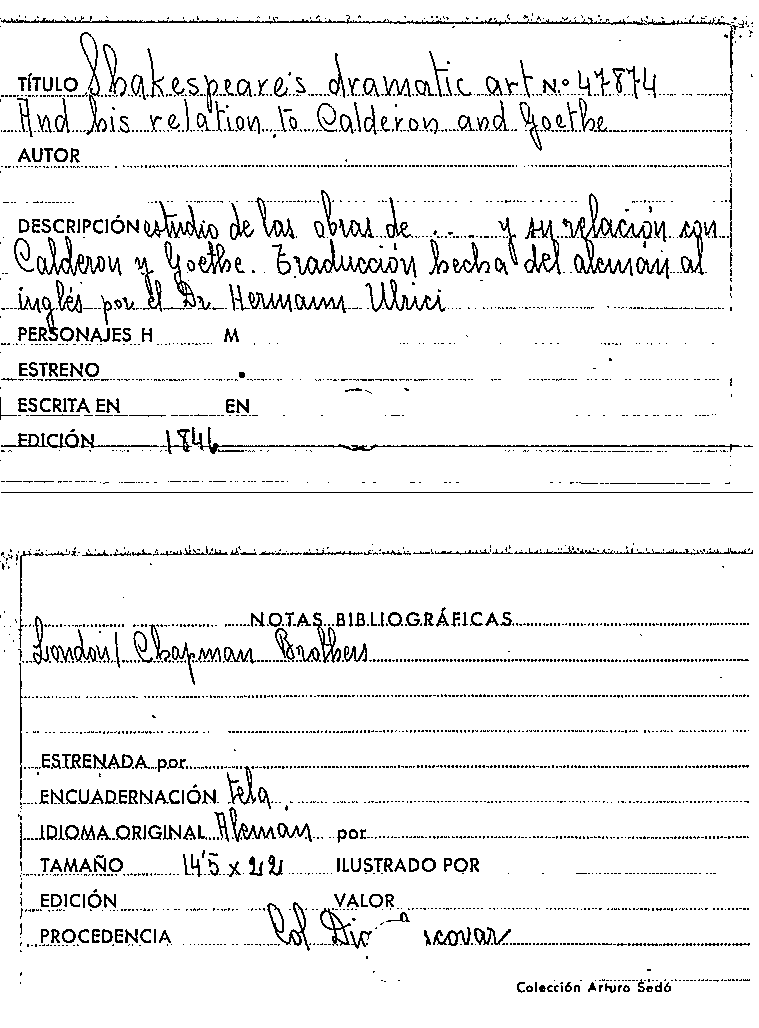 TÍTULO Shakespeare's dramatic art N.º 47874
And his relation to Calderon and Goethe
AUTOR
DESCRIPCIÓN estudio de las obras de .... y su relación con
Calderon y Goethe. Traducción hecha del alemán al
inglés por el Dr. Hermann Ulrici
PERSONAJES H M
ESTRENO
ESCRITA EN EN
EDICIÓN 1846
NOTAS BIBLIOGRÁFICAS
London/ Chapman Brothers
ESTRENADA por
ENCUADERNACIÓN tela
IDIOMA ORIGINAL Alemán por
TAMAÑO 14'5 x 22 ILUSTRADO POR
EDICIÓN VALOR
PROCEDENCIA Col
Colección Arturo Sedó